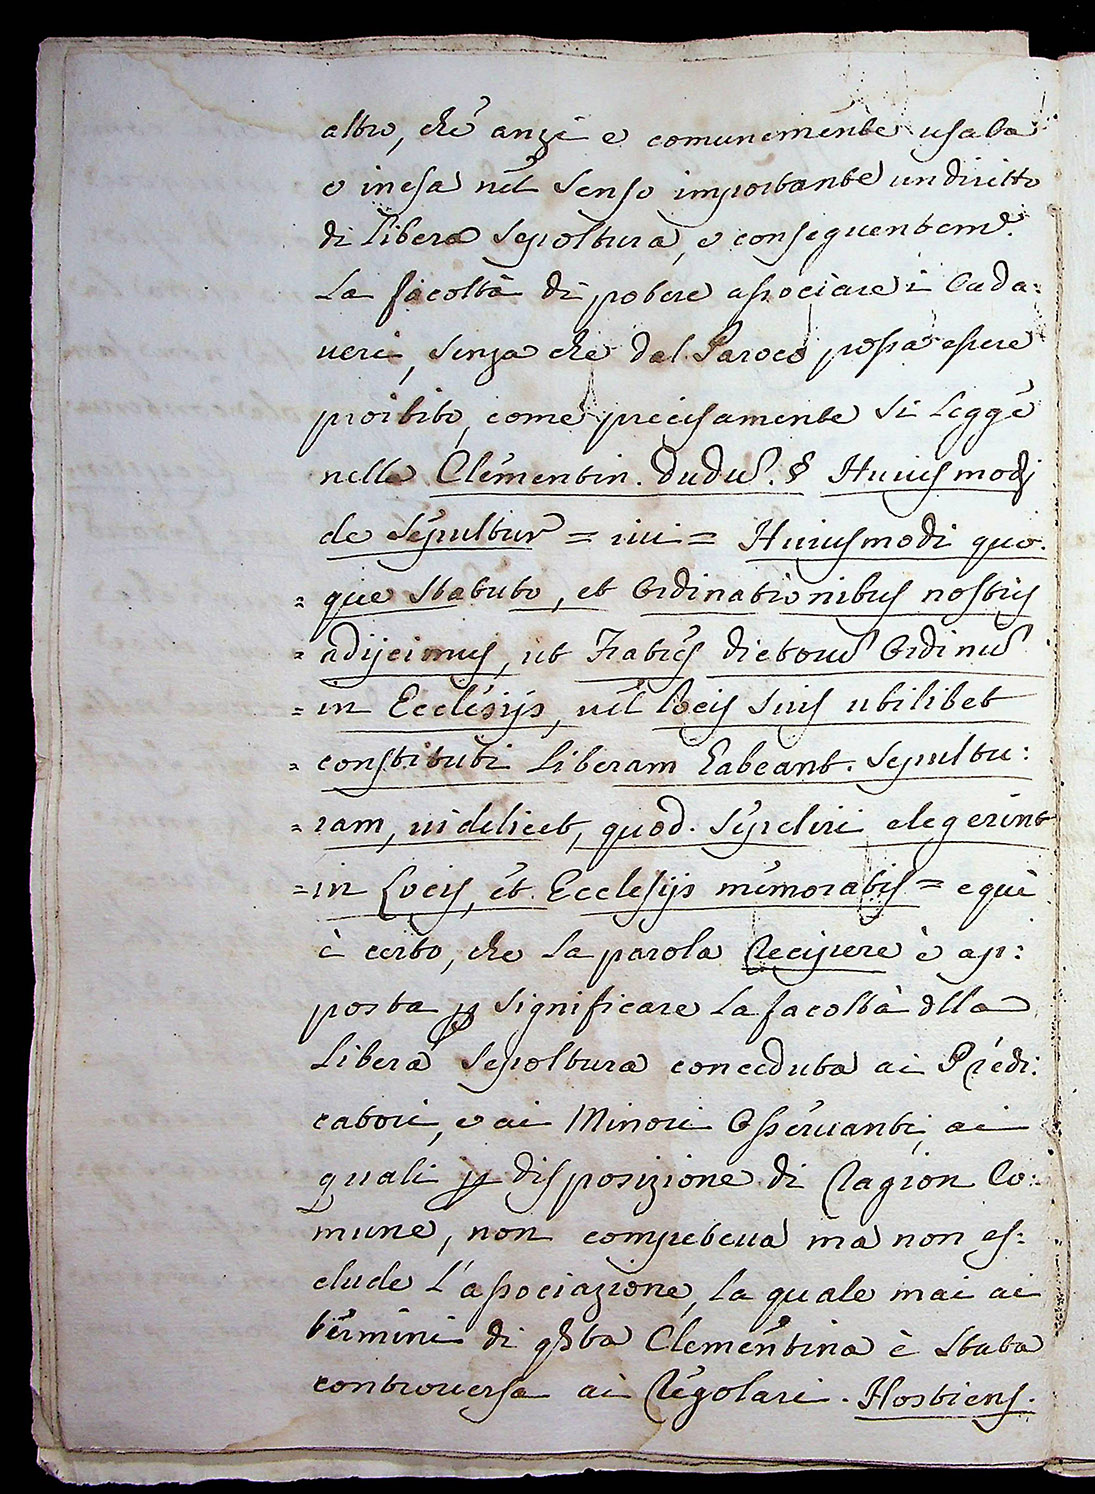 altro, che anzi e comunemente usata
e inesa nel senso importante un diritto
di libera sepoltura, e conseguentem.e
la facoltà di potere associare i Cada:
veri, senza che dal Paroco possa essere
proibito, come precisamente si legge
nella Clementin. Dudu. § Huiusmodi
de Sepultur = ivi = Huiusmodi quo.
= que statuto, et ordinationibus nostris
= adijcimus, ut Fratres dictorum Ordinum
= in Ecclesijs, vel locis suis ubilibet
= constituti liberam habeant. Sepultu:
= ram, videlicet, quod. sepeliri elegerint
= in Locis, et Ecclesijs memoratis = e qui
è certo, che la parola Recipere è ap:
posta p significare la facoltà dlla
libera sepoltura conceduta ai Predi:
catori, e ai Minori Osservanti, ai
quali p disposizione di Ragion Co:
mune, non competeva ma non es:
clude l'associazione, la quale mai ai
termini di qsta Clementina è stata
controversa ai Regolari. Hostiens.